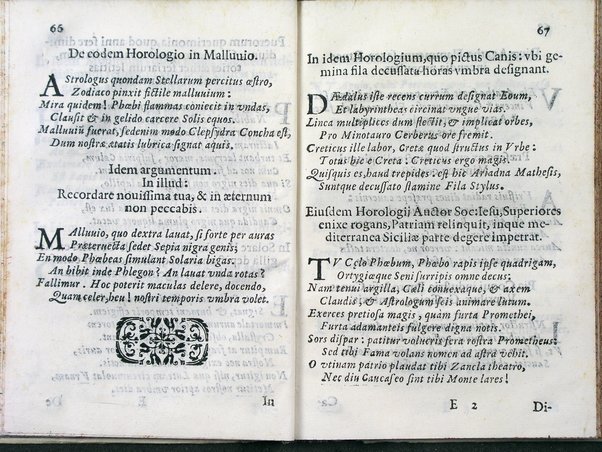 66
De eodem Horologio in Malluuio.
Astrologus quondam Stellarum percitus œstro,
Zodiaco pinxit fictile malluuium:
Mira quidem! Phœbi flammas coniecit in vndas,
Clausit & in gelido carcere Solis equos.
Malluuiũ fuerat, sed enim modo Clepsydra Concha est,
Dum nostræ ætatis lubrica signat aquis.
Idem argumentum.
In illud:
Recordare nouissima tua, & in æternum
non peccabis.
Malluuio, quo dextra lauat, si forte per auras
Præteruecta sedet Sepia nigra genis;
En modo Phœbeas simulant Solaria bigas.
An bibit inde Phlegon? An lauat vnda rotas?
Fallimur. Hoc poterit maculas delere, docendo,
Quam celer, heu! nostri temporis vmbra volet.
De
E
In
67
In idem Horologium, quo pictus Canis: vbi ge-
mina fila decussatu horas vmbra designant.
Dædalus iste recens cursum designat Eoum,
Et labyrintheas circinat vngue vias.
Linea multiplices dum flectit, & implicat orbes,
Pro Minotauro Cerberus ore fremit.
Creticus ille labor, Gretæ quod structus in Vrbe:
Totus hic e Creta: Creticus ergo magis.
Quisquis es, haud trepides: est hic Ariadna Mathesis,
Suntque decussato stamine Fila Stylus.
Eiusdem Horologij Auctor Soc. Iesu, Superiores
enixe rogans, Patriam relinquit, inque me-
diterranea Siciliæ parte degere impetrat.
TV Cęlo Phœbum, Phœbo rapis ipse quadrigam,
Ortygiæque Seni surripis omne decus:
Nam tenui argilla, Cæli conuexaque, & axem
Claudis; & Astrologum scis animare lutum.
Exerces pretiosa magis, quàm furta Promethei,
Furta adamanteis fulgere digna notis.
Sors dispar: patitur volucris fera rostra Prometheus:
Sed tibi Fama volans nomen ad astra vehit.
O vtinam patrio plaudat tibi Zancla theatro,
Nec diu Caucaseo sint tibi Monte lares!
E 2
Di-